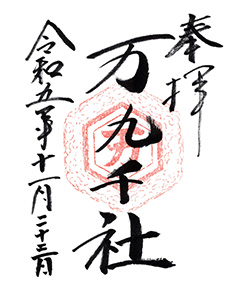 奉拝
万九千社
令和五年十一月二十三日